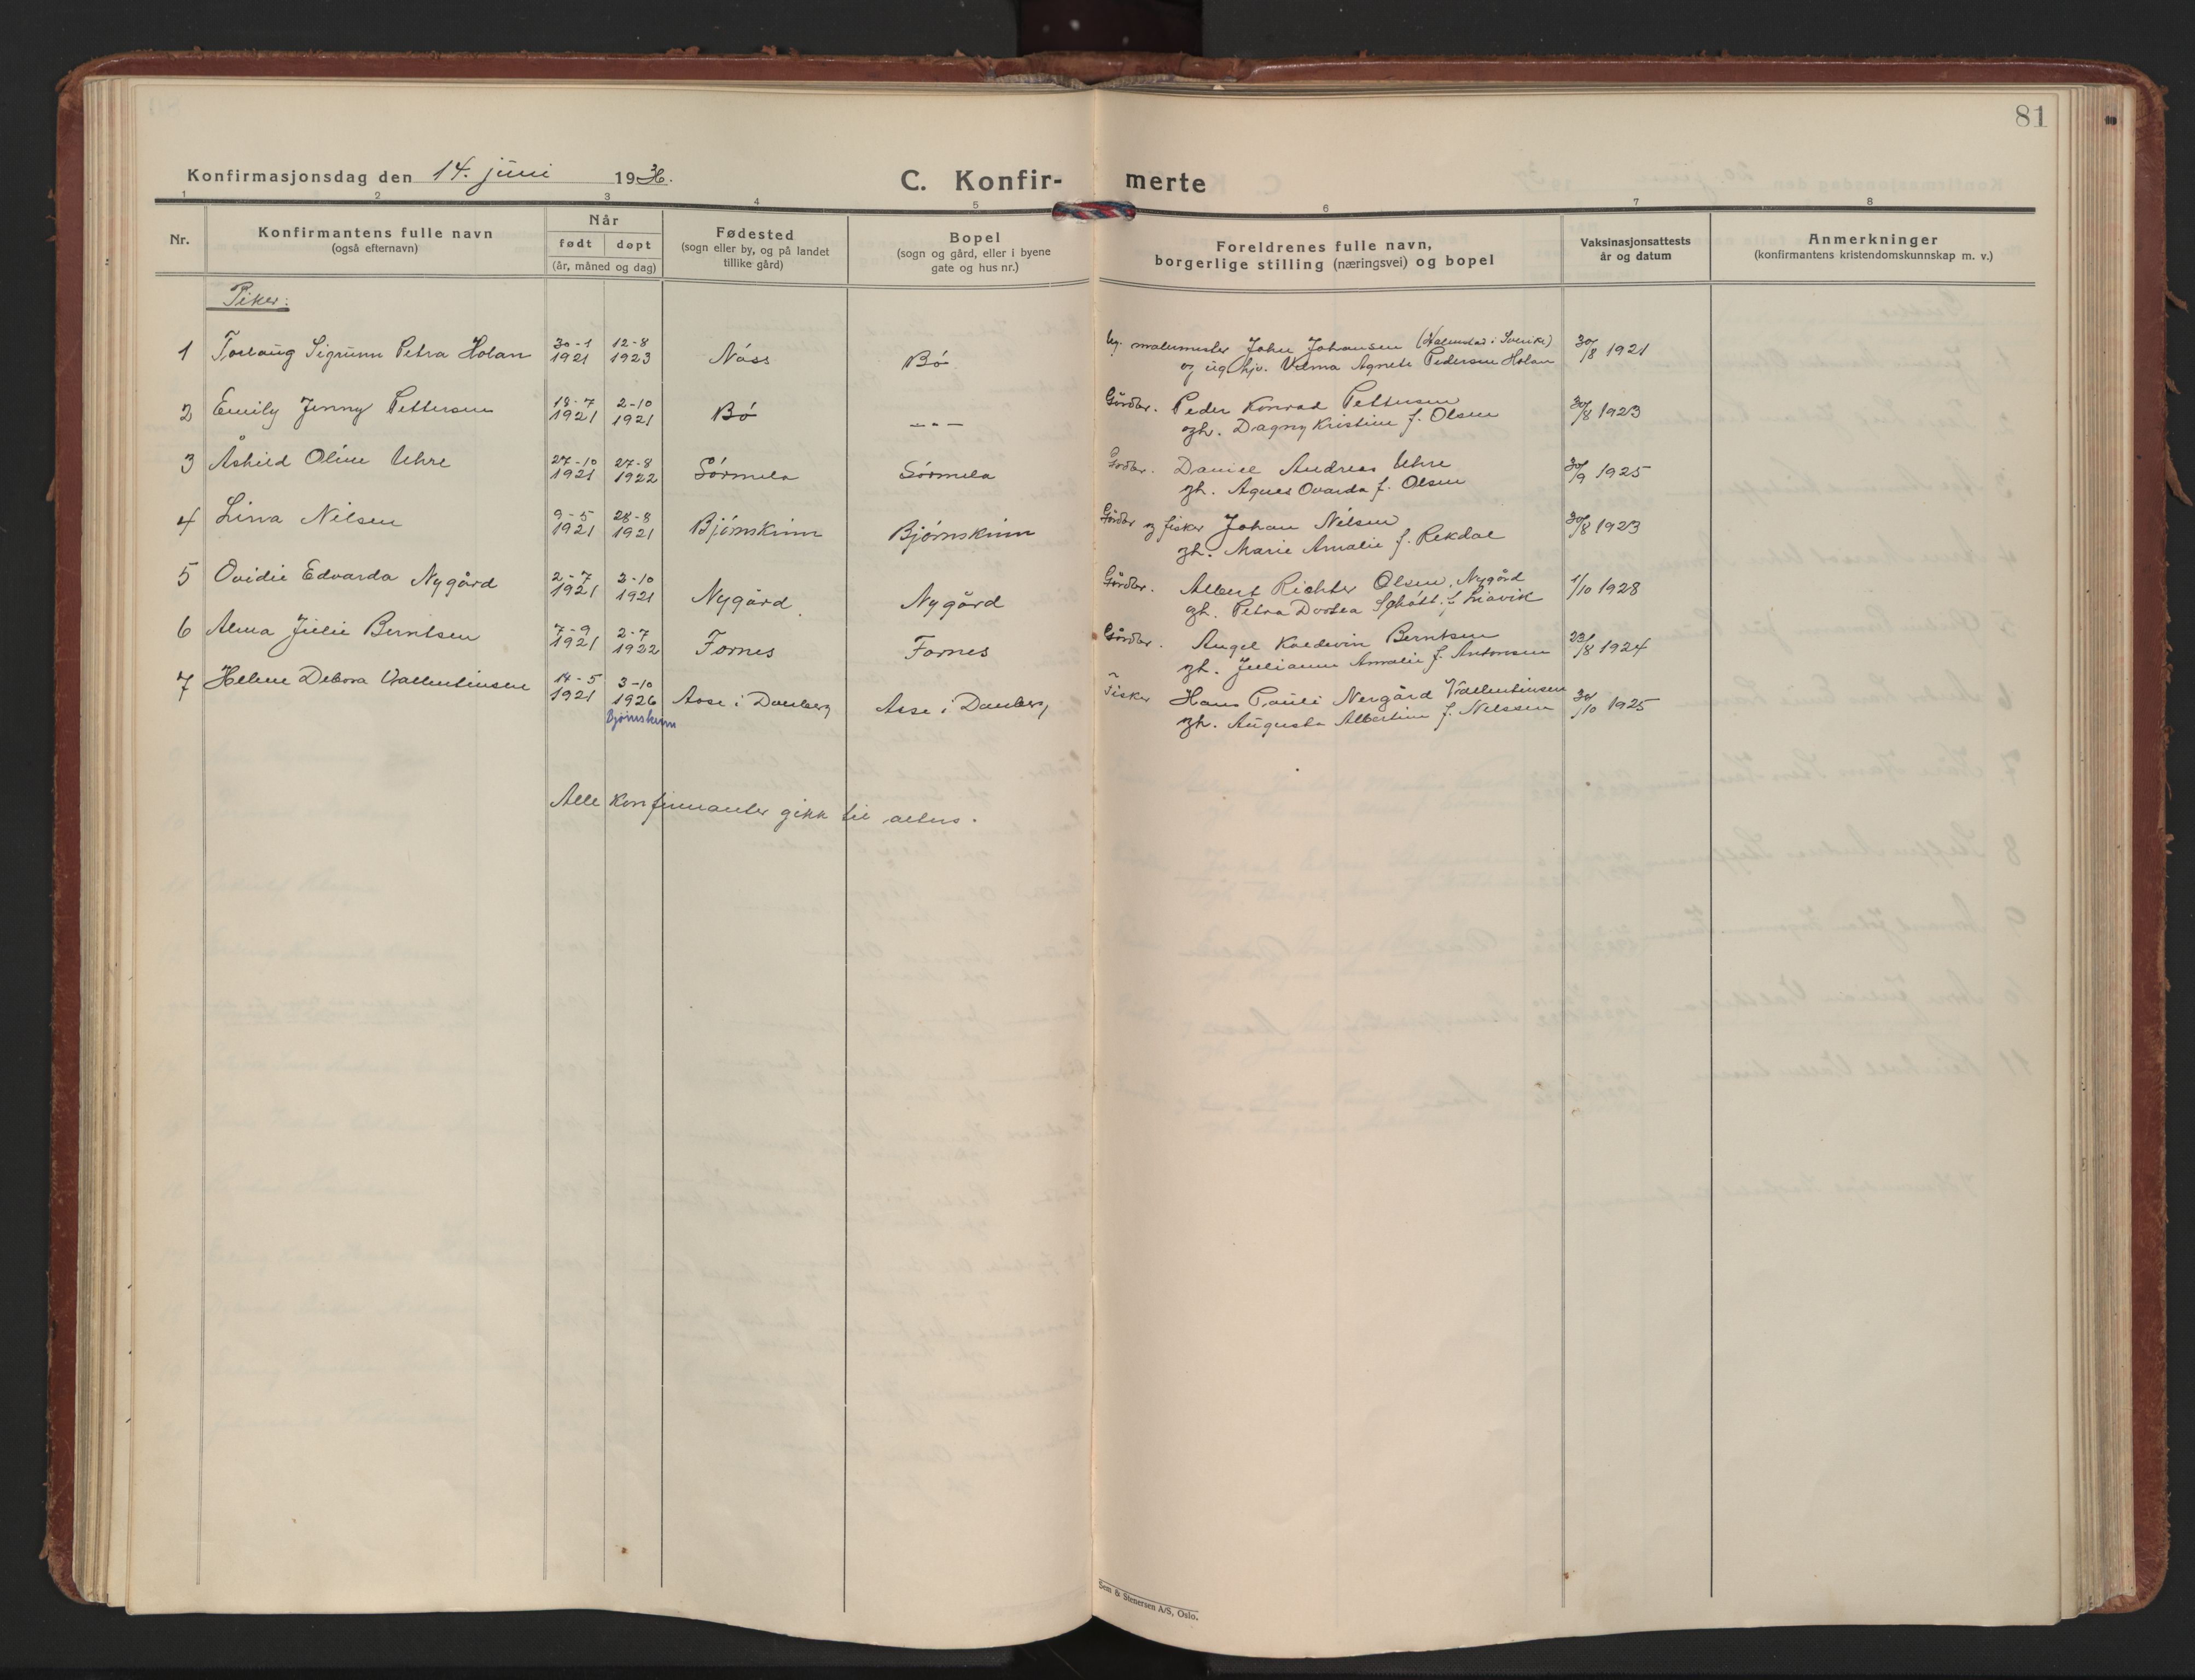 81
Konfirmasjonsdag den 14. juni 1936.
C. Konfir- merte
1 2 3 4 5 6 7 8
Nr.
Konfirmantens fulle navn
(også efternavn)
Når
født døpt
(år, måned og dag)
Fødested
(sogn eller by, og på landet
tillike gård)
Bopel
(sogn og gård, eller i byene
gate og hus nr.)
Foreldrenes fulle navn,
borgerlige stilling (næringsvei) og bopel
Vaksinasjonsattests
år og datum
Anmerkninger
(konfirmantens kristendomskunnskap m. v.)
Piker:
1 Torlaug Sigrunn Petra Holan 30-1 1921 12-8 1923 Nøss Bø ug. malermester John Johansen (Halmstad i Sverike) 30/8 1921
og ug. hjv. Verna Agnete Pedersen Holan
2 Emily Jenny Pettersen 18-7 1921 2-10 1921 Bø -"- Gårdbr. Peder Konrad Pettersen 30/8 1923
og h. Dagny Kristine f. Olsen
3 Åshild Oline Uhre 27-10 1921 27-8 1922 Sørmela Sørmela Gårdbr. Daniel Andreas Uhre 30/9 1925
og h. Agnes Ovarda f. Olsen
4 Lina Nilsen 9-5 1921 28-8 1921 Bjørnskinn Bjørnskinn Gårdbr og fisker Johan Nilsen 30/8 1923
og h. Marie Amalie f. Rekdal
5 Ovidie Edvarda Nygård 2-7 1921 2-10 1921 Nygård Nygård Gårdbr. Albert Richter Olsen, Nygård 1/10 1928
og h. Petra Dortea Schøtt f. Liavik
6 Alma Julie Berntsen 7-9 1921 2-7 1922 Fornes Fornes Gårdbr. Angel Kaldevin Berntsen 23/8 1924
og h. Julianne Amalie f. Antonsen
7 Helene Debora Vallentinsen 14-5 1921 3-10 1926 Åse i Dverberg Åse i Dverberg Fisker Hans Pauli Nergård Vallentinsen 30/10 1925
Bjørnskinn
og h. Augusta Albertine f. Nelssen
Alle konfirmanter gikk til alters.
Sem & Stenersen A/S, Oslo.